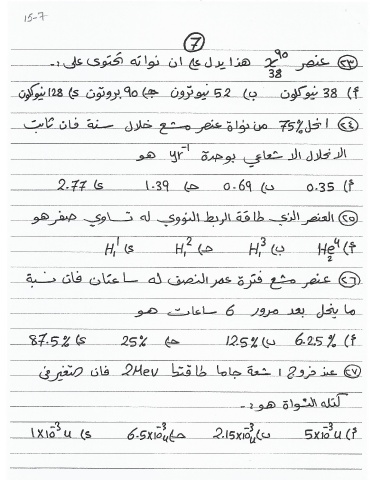 15-7
7
(٢٣) عنصر X⁹⁰₃₈ هذا يدل على ان نواته تحتوى على :-
أ) 38 نيوكلون ب) 52 نيوترون ج) 90 بروتون د) 128 نيوكلون
(٢٤) انحل 75% من نواة عنصر مشع خلال سنة فان ثابت
الانحلال الاشعاعي بوحدة yr⁻¹ هو
أ) 0.35 ب) 0.69 ج) 1.39 د) 2.77
(٢٥) العنصر الذي طاقة الربط النووي له تساوي صفر هو
أ) He⁴₂ ب) H³₁ ج) H²₁ د) H¹₁
(٢٦) عنصر مشع فترة عمر النصف له ساعتان فان نسبة
ما ينحل بعد مرور 6 ساعات هو
أ) 6.25% ب) 12.5% ج) 25% د) 87.5%
(٢٧) عند خروج اشعة جاما طاقتها 2Mev فان التغير في
كتله النواة هو :-
أ) 5x10⁻³ u ب) 2.15x10⁻³ u ج) 6.5x10⁻³ u د) 1x10⁻³ u